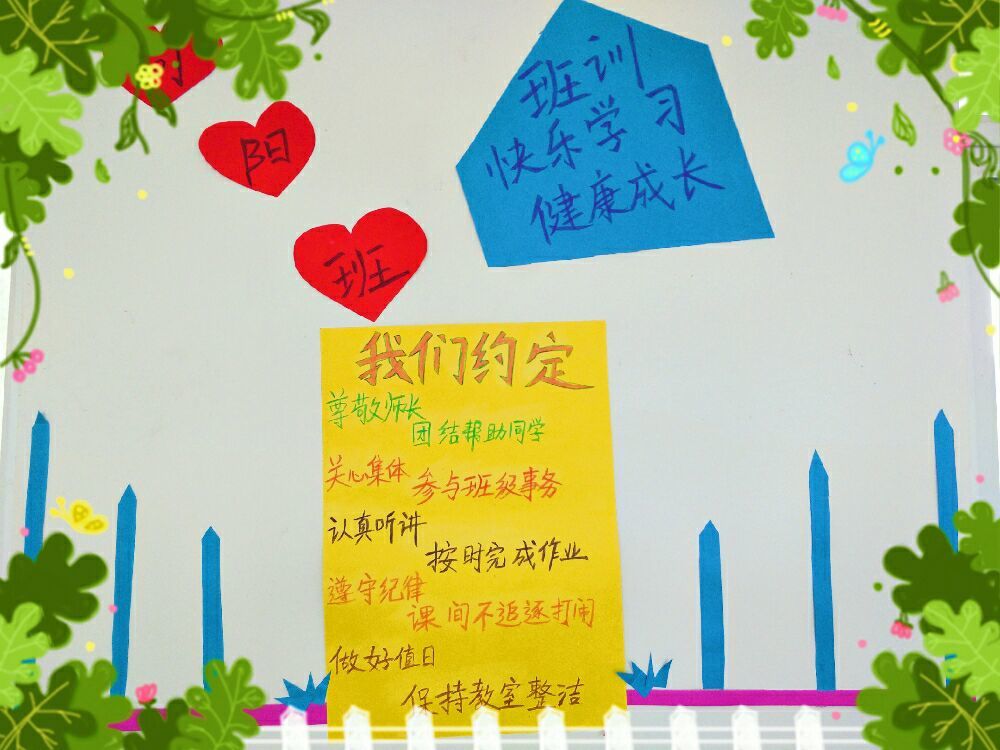 阳
班
班训
快乐学习
健康成长
我们约定
尊敬师长
团结帮助同学
关心集体
参与班级事务
认真听讲
按时完成作业
遵守纪律
课间不追逐打闹
做好值日
保持教室整洁